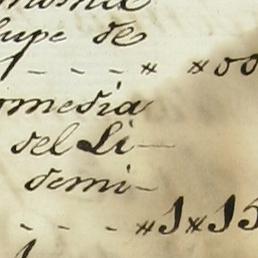 lupe de
- - - - * *00
omedia
del Li-
demi-
- - - - *1*15